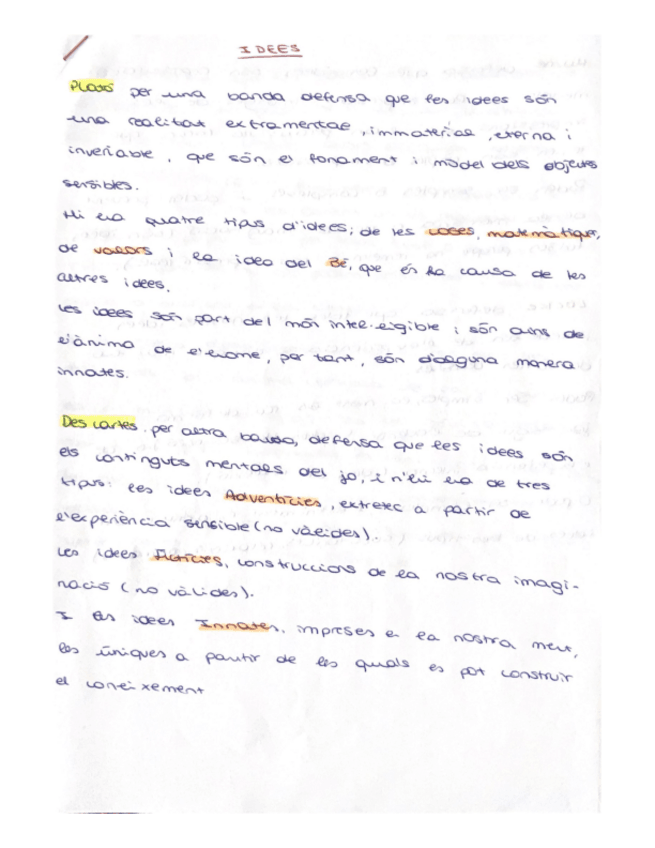 IDEES
Plató per una banda defensa que les idees són
una realitat extramental, immaterial, eterna i
invariable, que són el fonament i model dels objectes
sensibles.
Hi ha quatre tipus d'idees; de les coses, matemàtiques,
de valors i la idea del Bé, que és la causa de les
altres idees.
Les idees són part del món intel·eligible i són dins de
l'ànima de l'home, per tant, són d'alguna manera
innates.
Descartes, per altra banda, defensa que les idees són
els continguts mentals del jo, i n'hi ha de tres
tipus: les idees Adventícies, extretes a partir de
l'experiència sensible (no vàlides).
Les idees Fictícies, construccions de la nostra imagi-
nació (no vàlides).
I les idees Innates, impreses en la nostra ment,
les úniques a partir de les quals es pot construir
el coneixement